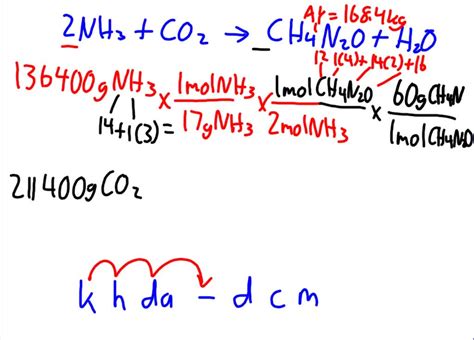 Ay = 168.4 kg
2NH3 + CO2 → _CH4N2O + H2O
12 1(4)+14(2)+16
136400g NH3 x 1molNH3/17gNH3 x 1molCH4N2O/2molNH3 x 60gCH4N/1molCH4N2O
14+1(3)=
211400g CO2
k h da - d c m